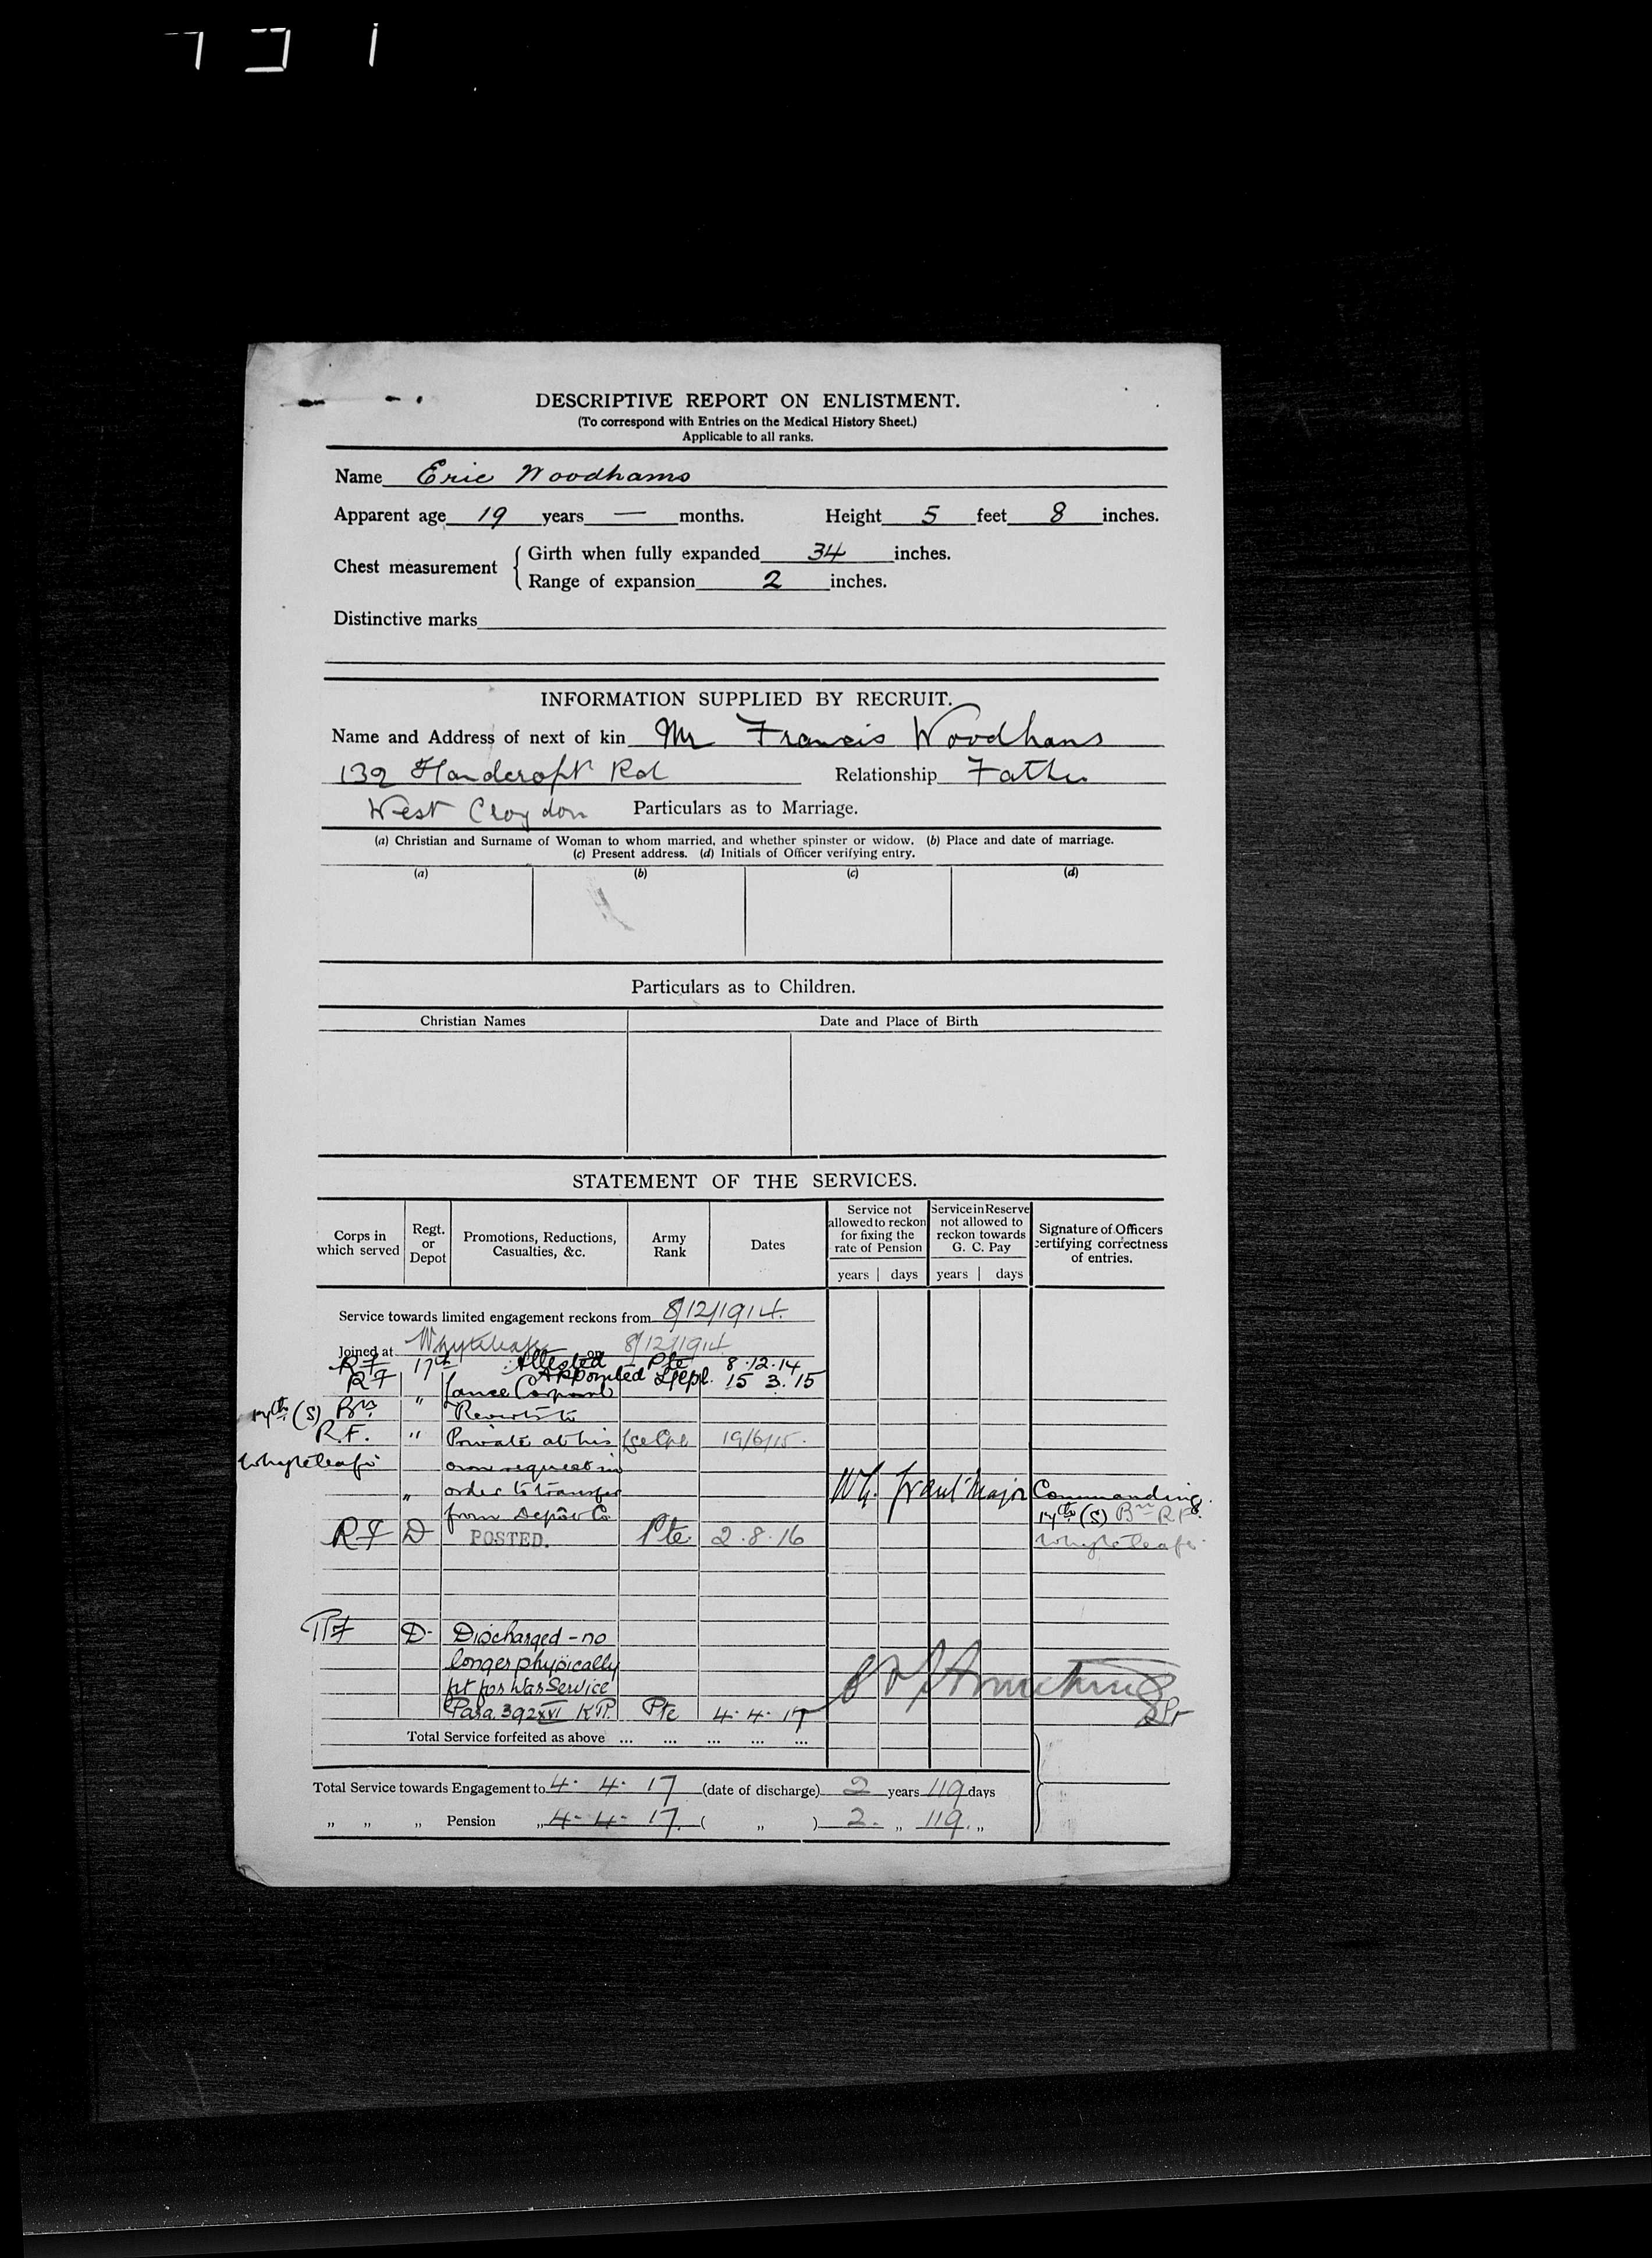 DESCRIPTIVE REPORT ON ENLISTMENT.
(To correspond with Entries on the Medical History Sheet.)
Applicable to all ranks.
Name Eric Woodhams
Apparent age 19 years — months. Height 5 feet 8 inches.
Chest measurement { Girth when fully expanded 34 inches.
Range of expansion 2 inches.
Distinctive marks
INFORMATION SUPPLIED BY RECRUIT.
Name and Address of next of kin Mr Francis Woodhams
139 Handcroft Rd Relationship Father
West Croydon Particulars as to Marriage.
(a) Christian and Surname of Woman to whom married, and whether spinster or widow. (b) Place and date of marriage.
(c) Present address. (d) Initials of Officer verifying entry.
(a) (b) (c) (d)
Particulars as to Children.
Christian Names Date and Place of Birth
STATEMENT OF THE SERVICES.
Corps in which served Regt. or Depot Promotions, Reductions, Casualties, &c. Army Rank Dates Service not allowed to reckon for fixing the rate of Pension Service in Reserve not allowed to reckon towards G. C. Pay Signature of Officers certifying correctness of entries.
years days years days
Service towards limited engagement reckons from 8/12/1914.
Joined at Whyteleafe on 8/12/1914
RF 17th Attested Pte 8.12.14
RF " Appointed Lance Corporal L/Cpl. 15 3.15
17th (S) Bn " Reverts to
R.F. " Private at his Lce Cpl 19/6/15.
Whyteleafe own request in
" order to transfer Major Commanding.
from Depôt Co. 17th (S) Bn R.F.
RF D POSTED. Pte 2.8.16 Whyteleafe.
RF D Discharged - no
longer physically
fit for War Service
Para. 392 XVI K.R. Pte 4.4.17
Total Service forfeited as above ... ... ... ... ...
Total Service towards Engagement to 4. 4. 17 (date of discharge) 2 years 119 days
„ „ „ Pension „ 4-4-17. ( „ ) 2. „ 119. „